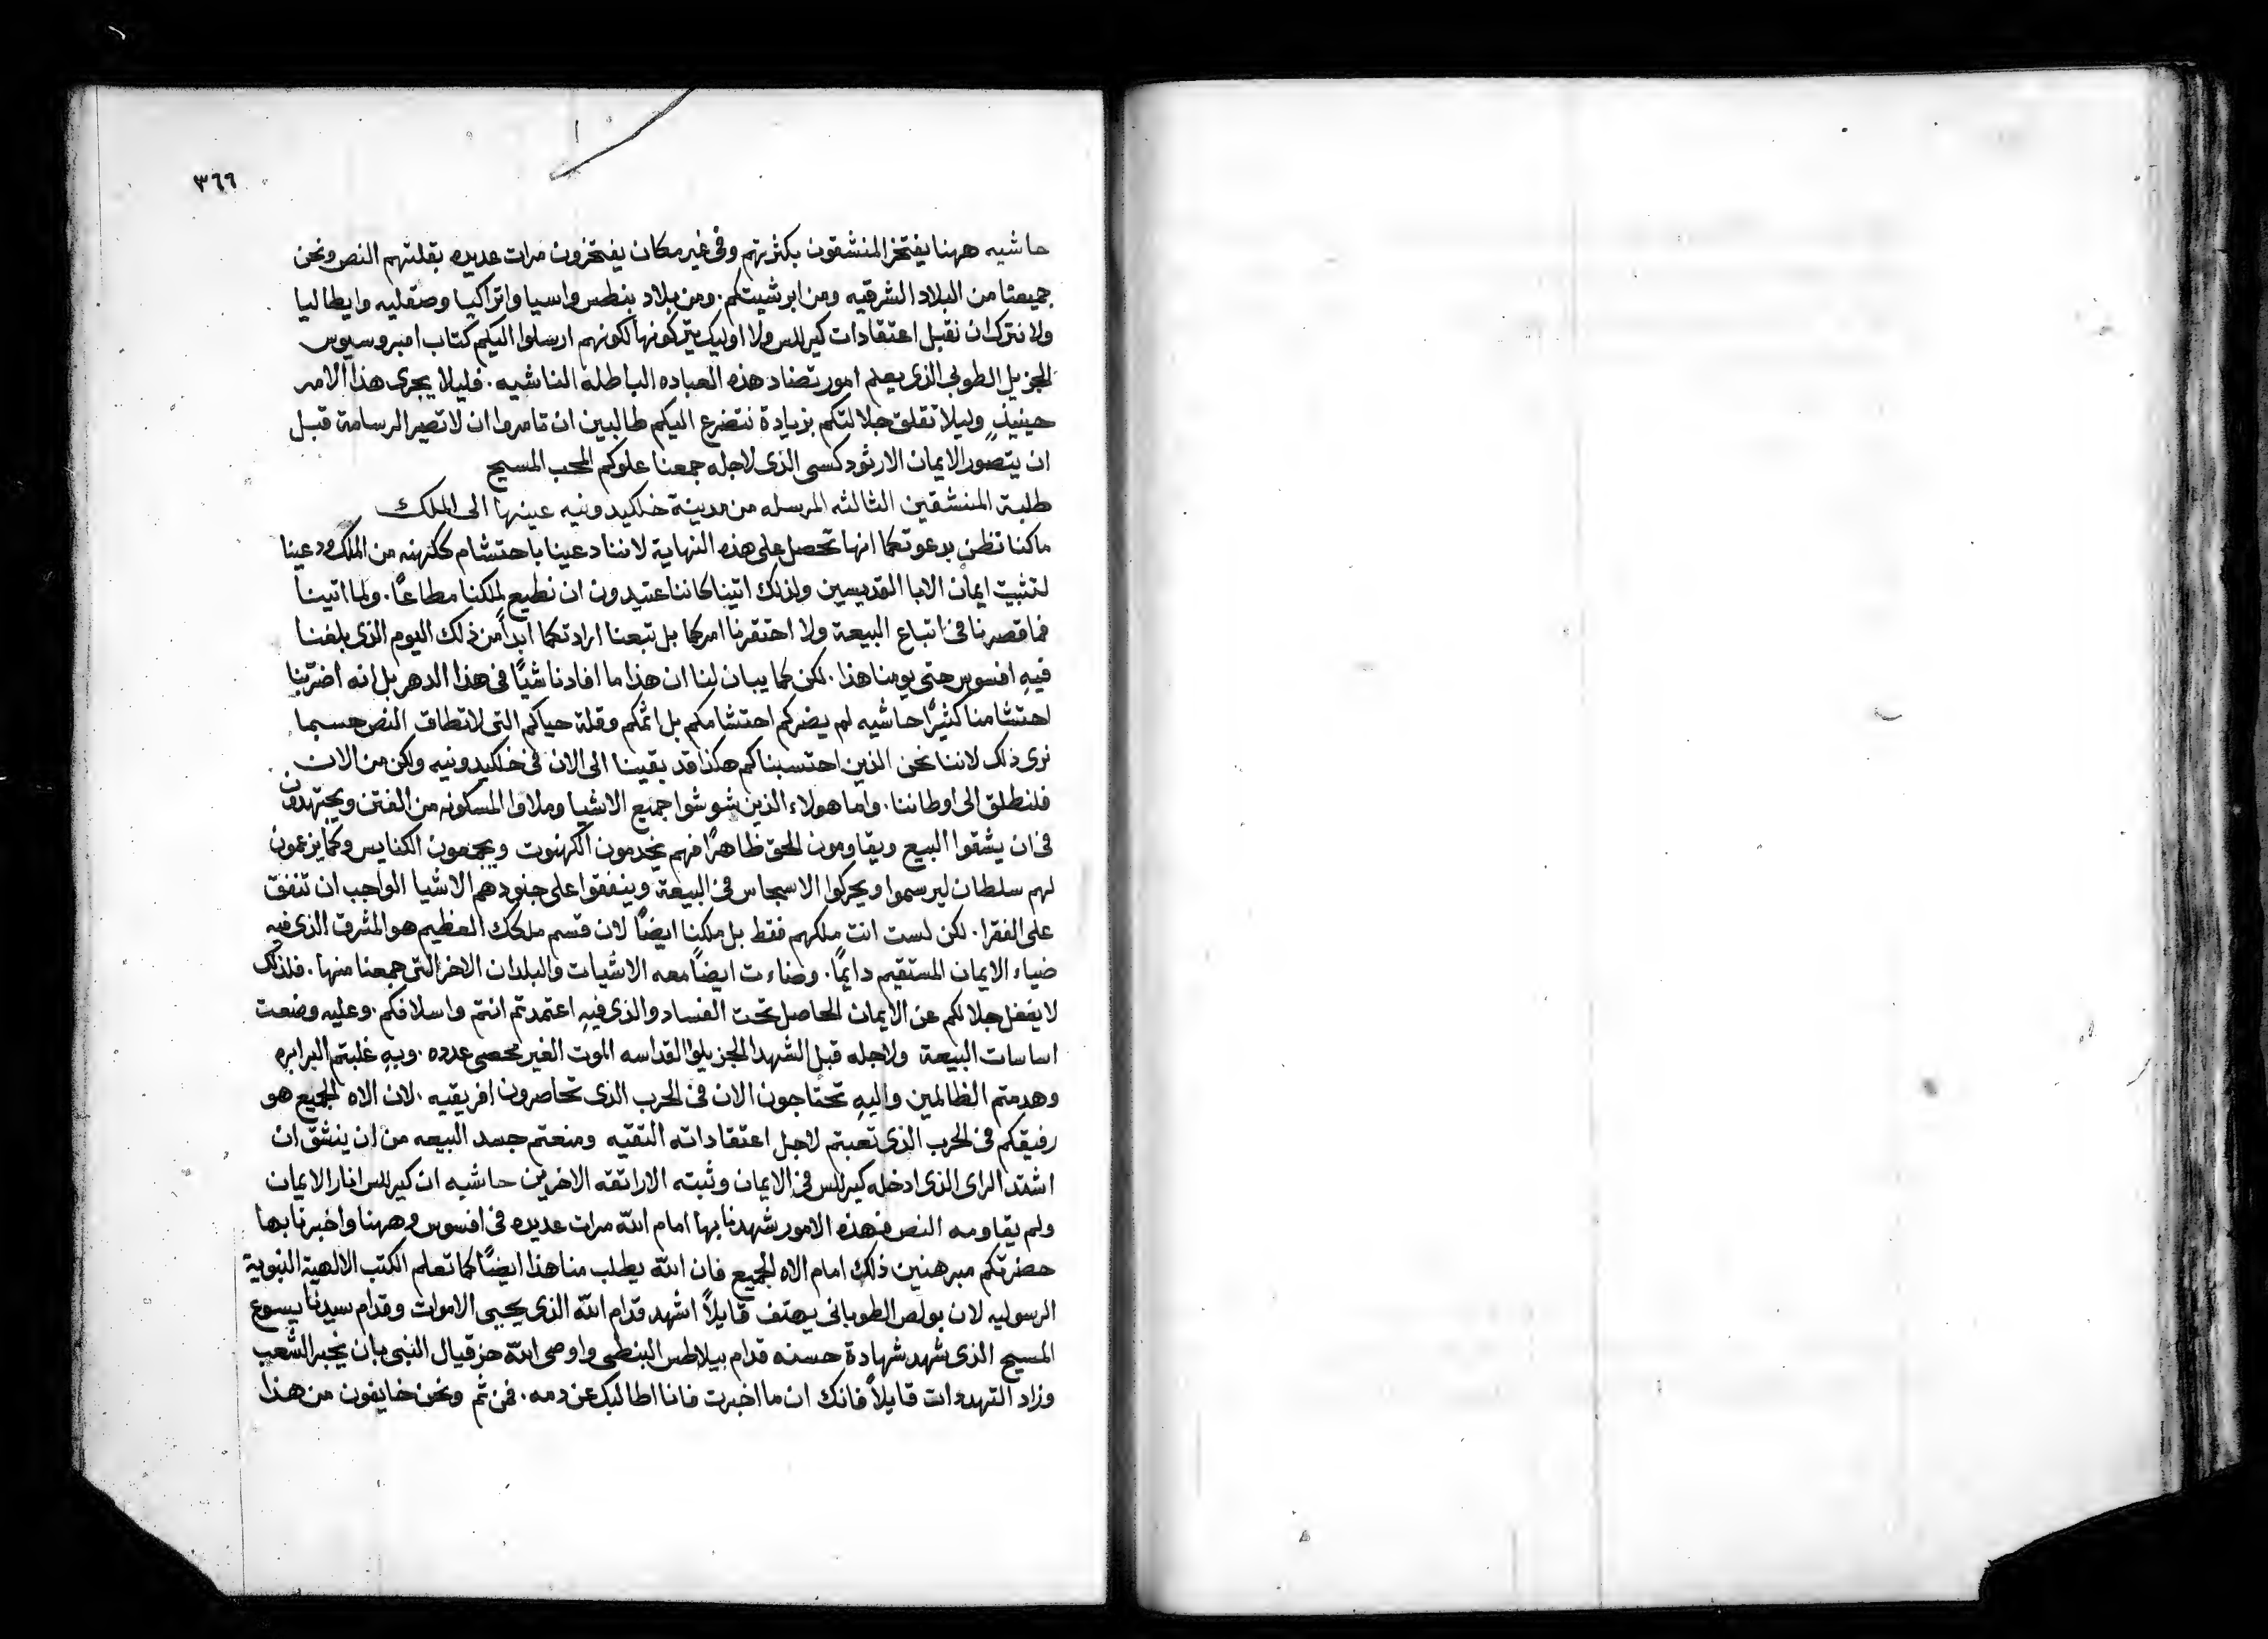 ٣٦٦
حاشيه ههنا يفتخر المنشقون بكثرتهم وفى غير مكان يفتخرون مرات عديده بقلتهم النص ونحن
جميعنا من البلاد الشرقيه ومن ابرشيتكم. ومن بلاد بنطس واسيا واتراكيا وصقليه وايطاليا
ولا نترك ان نقبل اعتقادات كيرللس ولا اوليك يتركونها لكونهم ارسلوا اليكم كتاب امبروسيوس
الجزيل الطوبى الذى يعلم امور تضاد هذه العباده الباطلة الناشيه. فليلا يجرى هذا الامر
حينيذٍ وليلا تقلق جلالتكم بزيادة نتضرع اليكم طالبين ان تامروا ان لا تصير الرسامة قبل
ان يتصور الايمان الارثودكسى الذى لاجله جمعنا علوكم المحب المسيح
طلبة المنشقين الثالثه المرسله من مدينة خلكيدونيه عينها الى الملك
ماكنا نظن بدعوتكما انها تحصل على هذه النهاية لاننا دعينا باحتشام ككهنه من الملك ودعينا
لتثبيت ايمان الابا القديسين ولذلك اتينا كاننا عتيدون ان نطيع لملكنا مطاعًا. ولما اتينا
فما قصرنا فى اتباع البيعة ولا احتقرنا امركما بل تبعنا ارادتكما ابداً من ذلك اليوم الذى بلغنا
فيهِ افسوس حتى يومنا هذا. لكن كما يبان لنا ان هذا ما افادنا شيًا فى هذا الدهر بل انه اضرّ بنا
احتشامنا كثيرًا حاشيه لم يضركم احتشامكم بل اثمكم وقلة حياكم التى لا تطاق النص حسبما
نرى ذلك لاننا نحن الذين احتسبناكم هكذا قد بقينا الى الان فى خلكيدونيه ولكن من الان
فلنطلق الى اوطاننا. واما هولاء الذين شوشوا جميع الاشيا وملاوا المسكونه من الفتن ويجتهدون
فى ان يشقوا البيع ويقاومون الحق ظاهرًا فهم يخدمون الكهنوت ويجمعون الكنايس وكما يزعمون
لهم سلطان ليرسموا ويحركوا الاسجاس فى البيعة وينفقوا على جنودهم الاشيا الواجب ان تنفق
على الفقرا. لكن لست انت ملكهم فقط بل ملكنا ايضًا لان قسم ملكك العظيم هو المشرق الذى فيه
ضياء الايمان المستقيم دايمًا. وضاءت ايضًا معه الاشيات والبلدان الاخر التى جمعنا منها. فلذلك
لا يغفل جلالكم عن الايمان الحاصل تحت الفساد والذى فيهِ اعتمدتم انتم واسلافكم. وعليه وضعت
اساسات البيعة ولاجله قبل الشهدا الجزيلوا القداسه الموت الغير محصى عدده. وبهِ غلبتم البرابره
وهدمتم الظالمين واليهِ تحتاجون الان فى الحرب الذى تحاصرون افريقيه. لان الاه الجميع هو
رفيقكم فى الحرب الذى تعبتم لاجل اعتقاداته التقيه ومنعتم جسد البيعه من ان ينشق ان
اشتد الراى الذى ادخله كيرللس فى الايمان وثبته الاراتقه الاخرين حاشيه ان كيرللس انار الايمان
ولم يقاومه النص فهذه الامور شهدنا بها امام اللّه مرات عديده فى افسوس وههنا واخبرنا بها
حضرتكم مبرهنين ذلك امام الاه الجميع فان اللّه يطلب منا هذا ايضًا كما تعلم الكتب الالهية النبوية
الرسوليه لان بولص الطوبانى يهتف قايلاً اشهد قدام اللّه الذى يحيى الاموات وقدام سيدنا يسوع
المسيح الذى شهد شهادة حسنه قدام بيلاطس البنطى واوصى اللّه حزقيال النبى بان يخبر الشعب
وزاد التهددات قايلاً فانك ان ما اخبرت فانا اطالبك عن دمه. فمن ثم ونحن خايفون من هذا